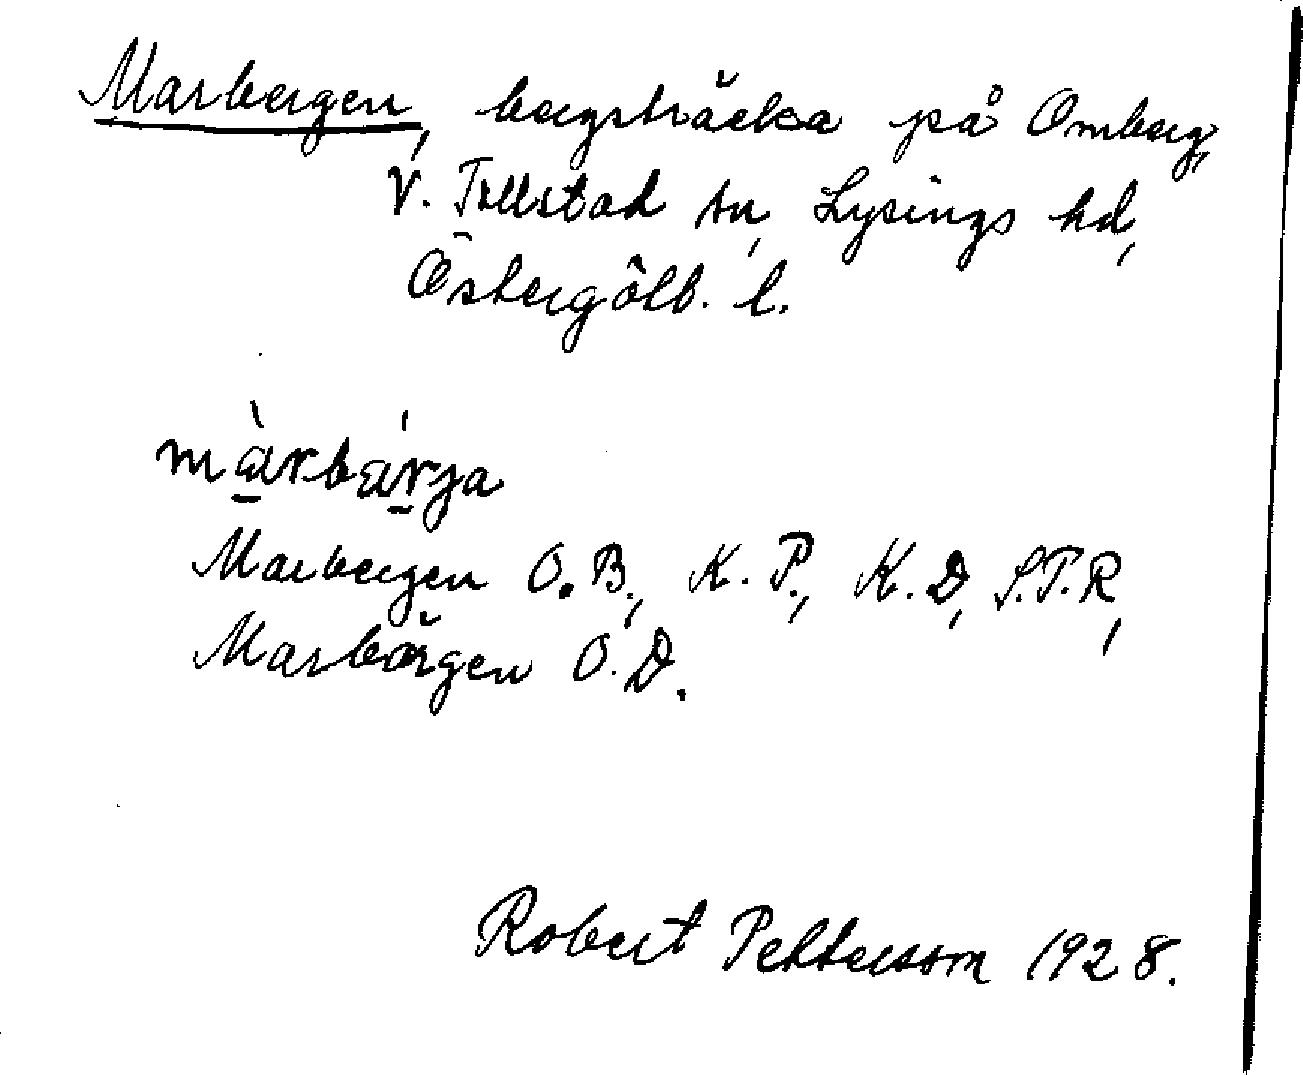 Marbergen, bergsträcka på Omberg,
V. Tollstad sn, Lysings hd,
Östergötl. l.
màrbárja
Marbergen O.B., K.P., K.D, S.P.R,
Marbärgen O.D.
Robert Pettersson 1928.